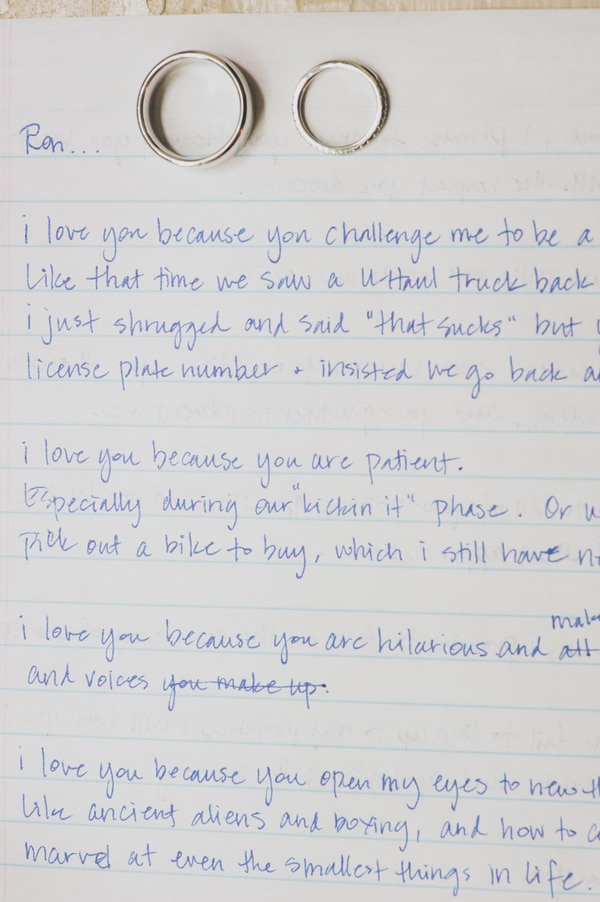 Ron...
i love you because you challenge me to be a
Like that time we saw a U-Haul truck back
i just shrugged and said "that sucks" but
license plate number + insisted we go back
i love you because you are patient.
Especially during our "kickin it" phase. Or
Pick out a bike to buy, which i still have
i love you because you are hilarious and
and voices you make up.
i love you because you open my eyes to new
Like ancient aliens and boxing, and how to
marvel at even the smallest things in life.